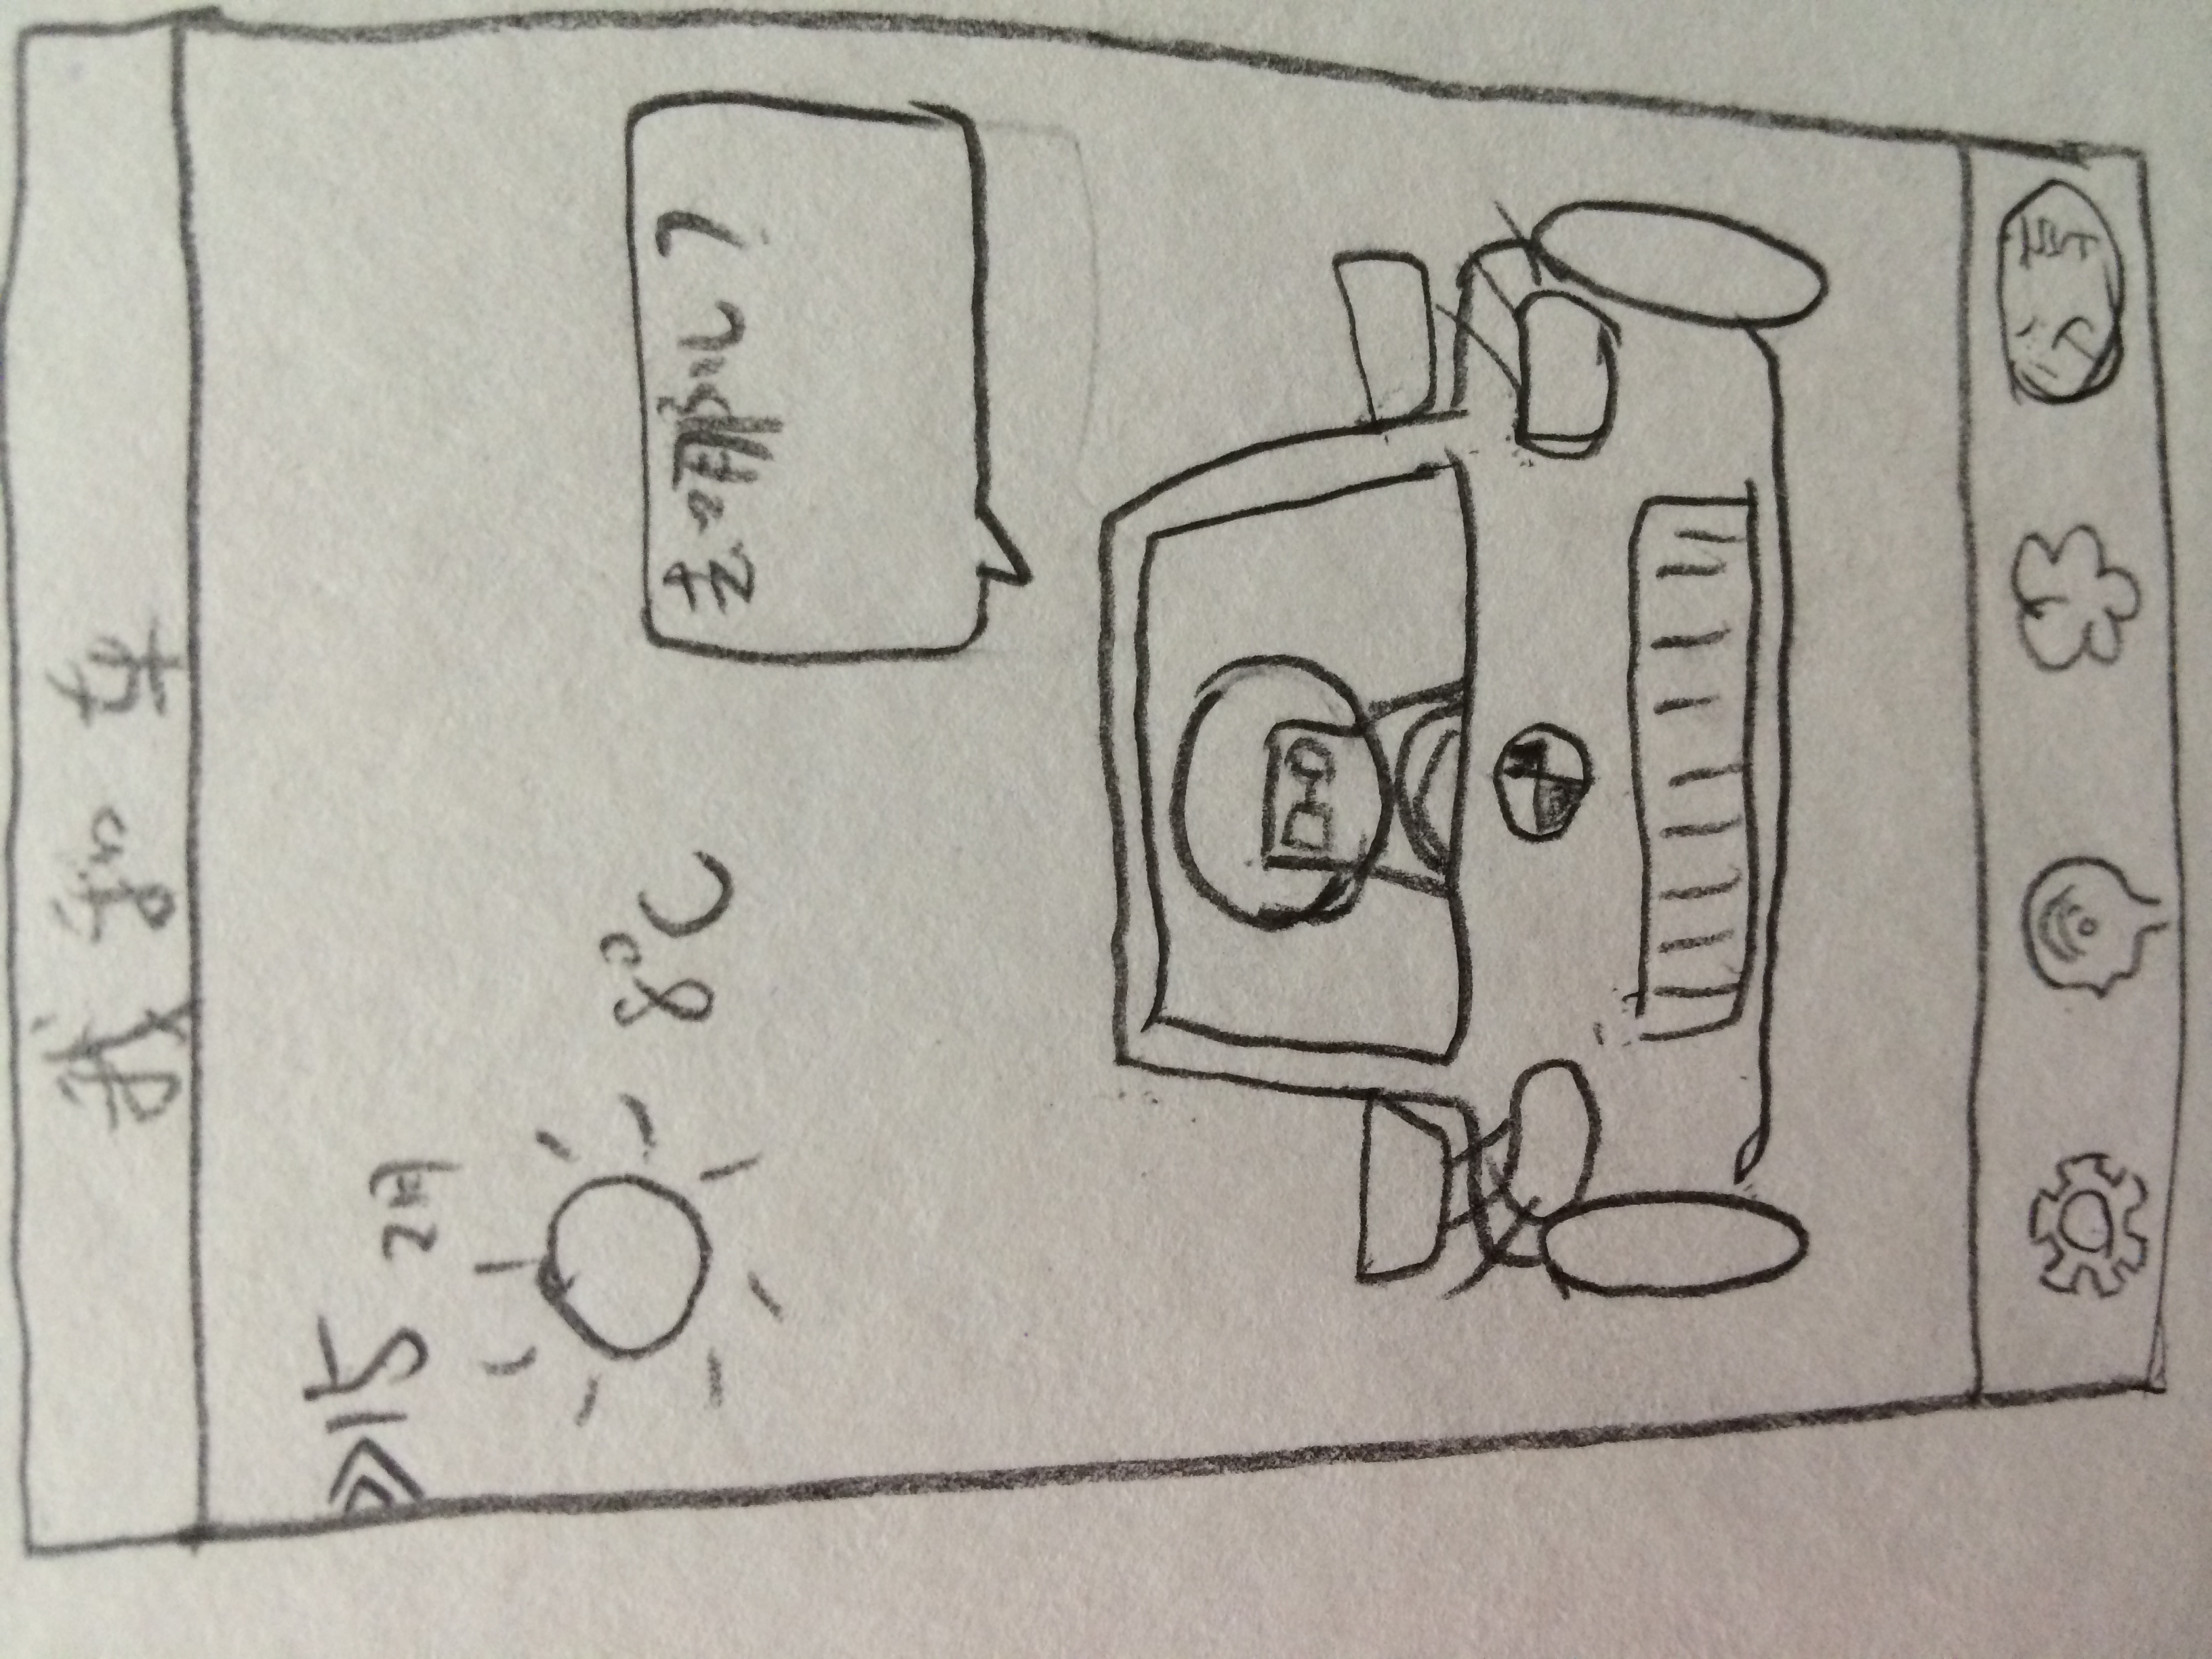 我和车
»15 2月
8°C
去哪儿？
分享